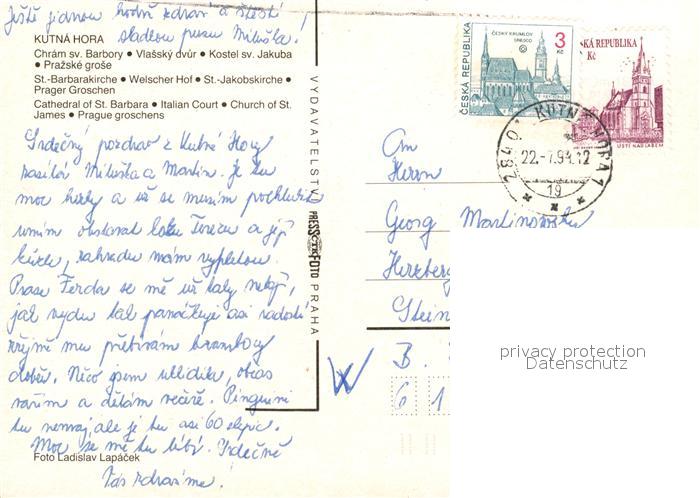 Ještě jednou hodně zdraví a štěstí
sladkou pusu Miluška.
KUTNÁ HORA
Chrám sv. Barbory ● Vlašský dvůr ● Kostel sv. Jakuba
● Pražské groše
St.-Barbarakirche ● Welscher Hof ● St.-Jakobskirche ●
Prager Groschen
Cathedral of St. Barbara ● Italian Court ● Church of St.
James ● Prague groschens
Srdečný pozdrav z Kutné Hory
zasílá Miluška a Martin. Je tu
moc hezky a už se musím pochlubit
umím obstarat Terezu a její
zahradu mám vypletou.
Prase Ferda se mě už taky nebojí,
jak vyjdu tak panáčkuje asi radostí
mu přebírám brambory
dobře. Něco jsem uklidila, občas
vařím a dělám večeře. Pinguini
tu nemaj ale je tu asi 60 slepic.
Moc se mě tu líbí. Srdečně
Vás zdravíme!
Foto Ladislav Lapáček
VYDAVATELSTVÍ PRESSFOTO PRAHA
ČESKÁ REPUBLIKA
ČESKÝ KRUMLOV
UNESCO
3
Kč
KÁ REPUBLIKA
Kč
ÚSTÍ NAD LABEM
KUTNÁ HORA 1
284 01
22.-7.94-12
19
An
Herrn
Georg
Herzberg
Stein
W
B.
6 1
privacy protection
Datenschutz